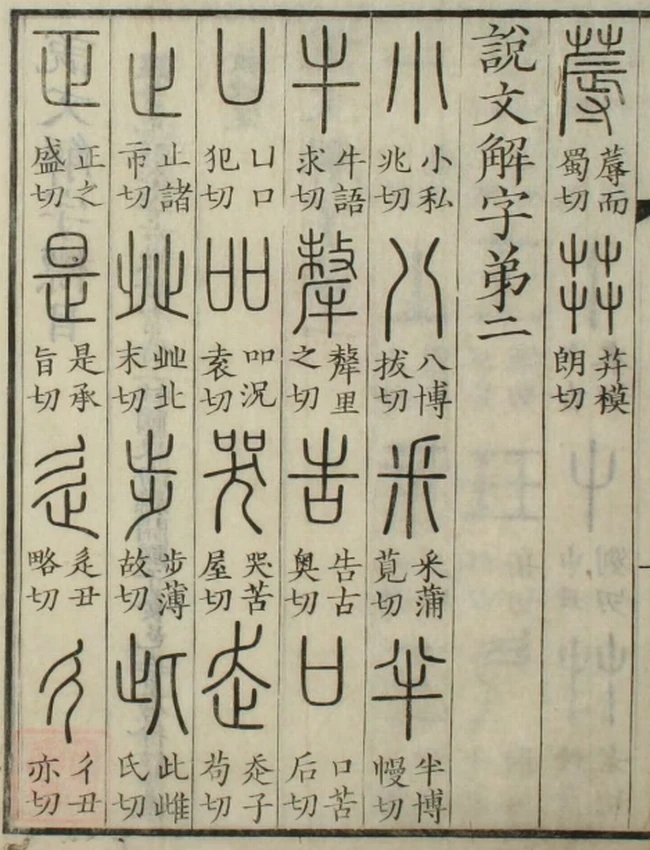 蓐 蓐而蜀切 茻 茻模朗切
說文解字弟二
小 小私兆切 八 八博拔切 釆 釆蒲莧切 半 半博幔切
牛 牛語求切 犛 犛里之切 告 告古奧切 口 口苦后切
凵 凵口犯切 吅 吅況袁切 哭 哭苦屋切 走 走子苟切
止 止諸市切 癶 癶北末切 步 步薄故切 此 此雌氏切
正 正之盛切 是 是承旨切 辵 辵丑略切 彳 彳丑亦切